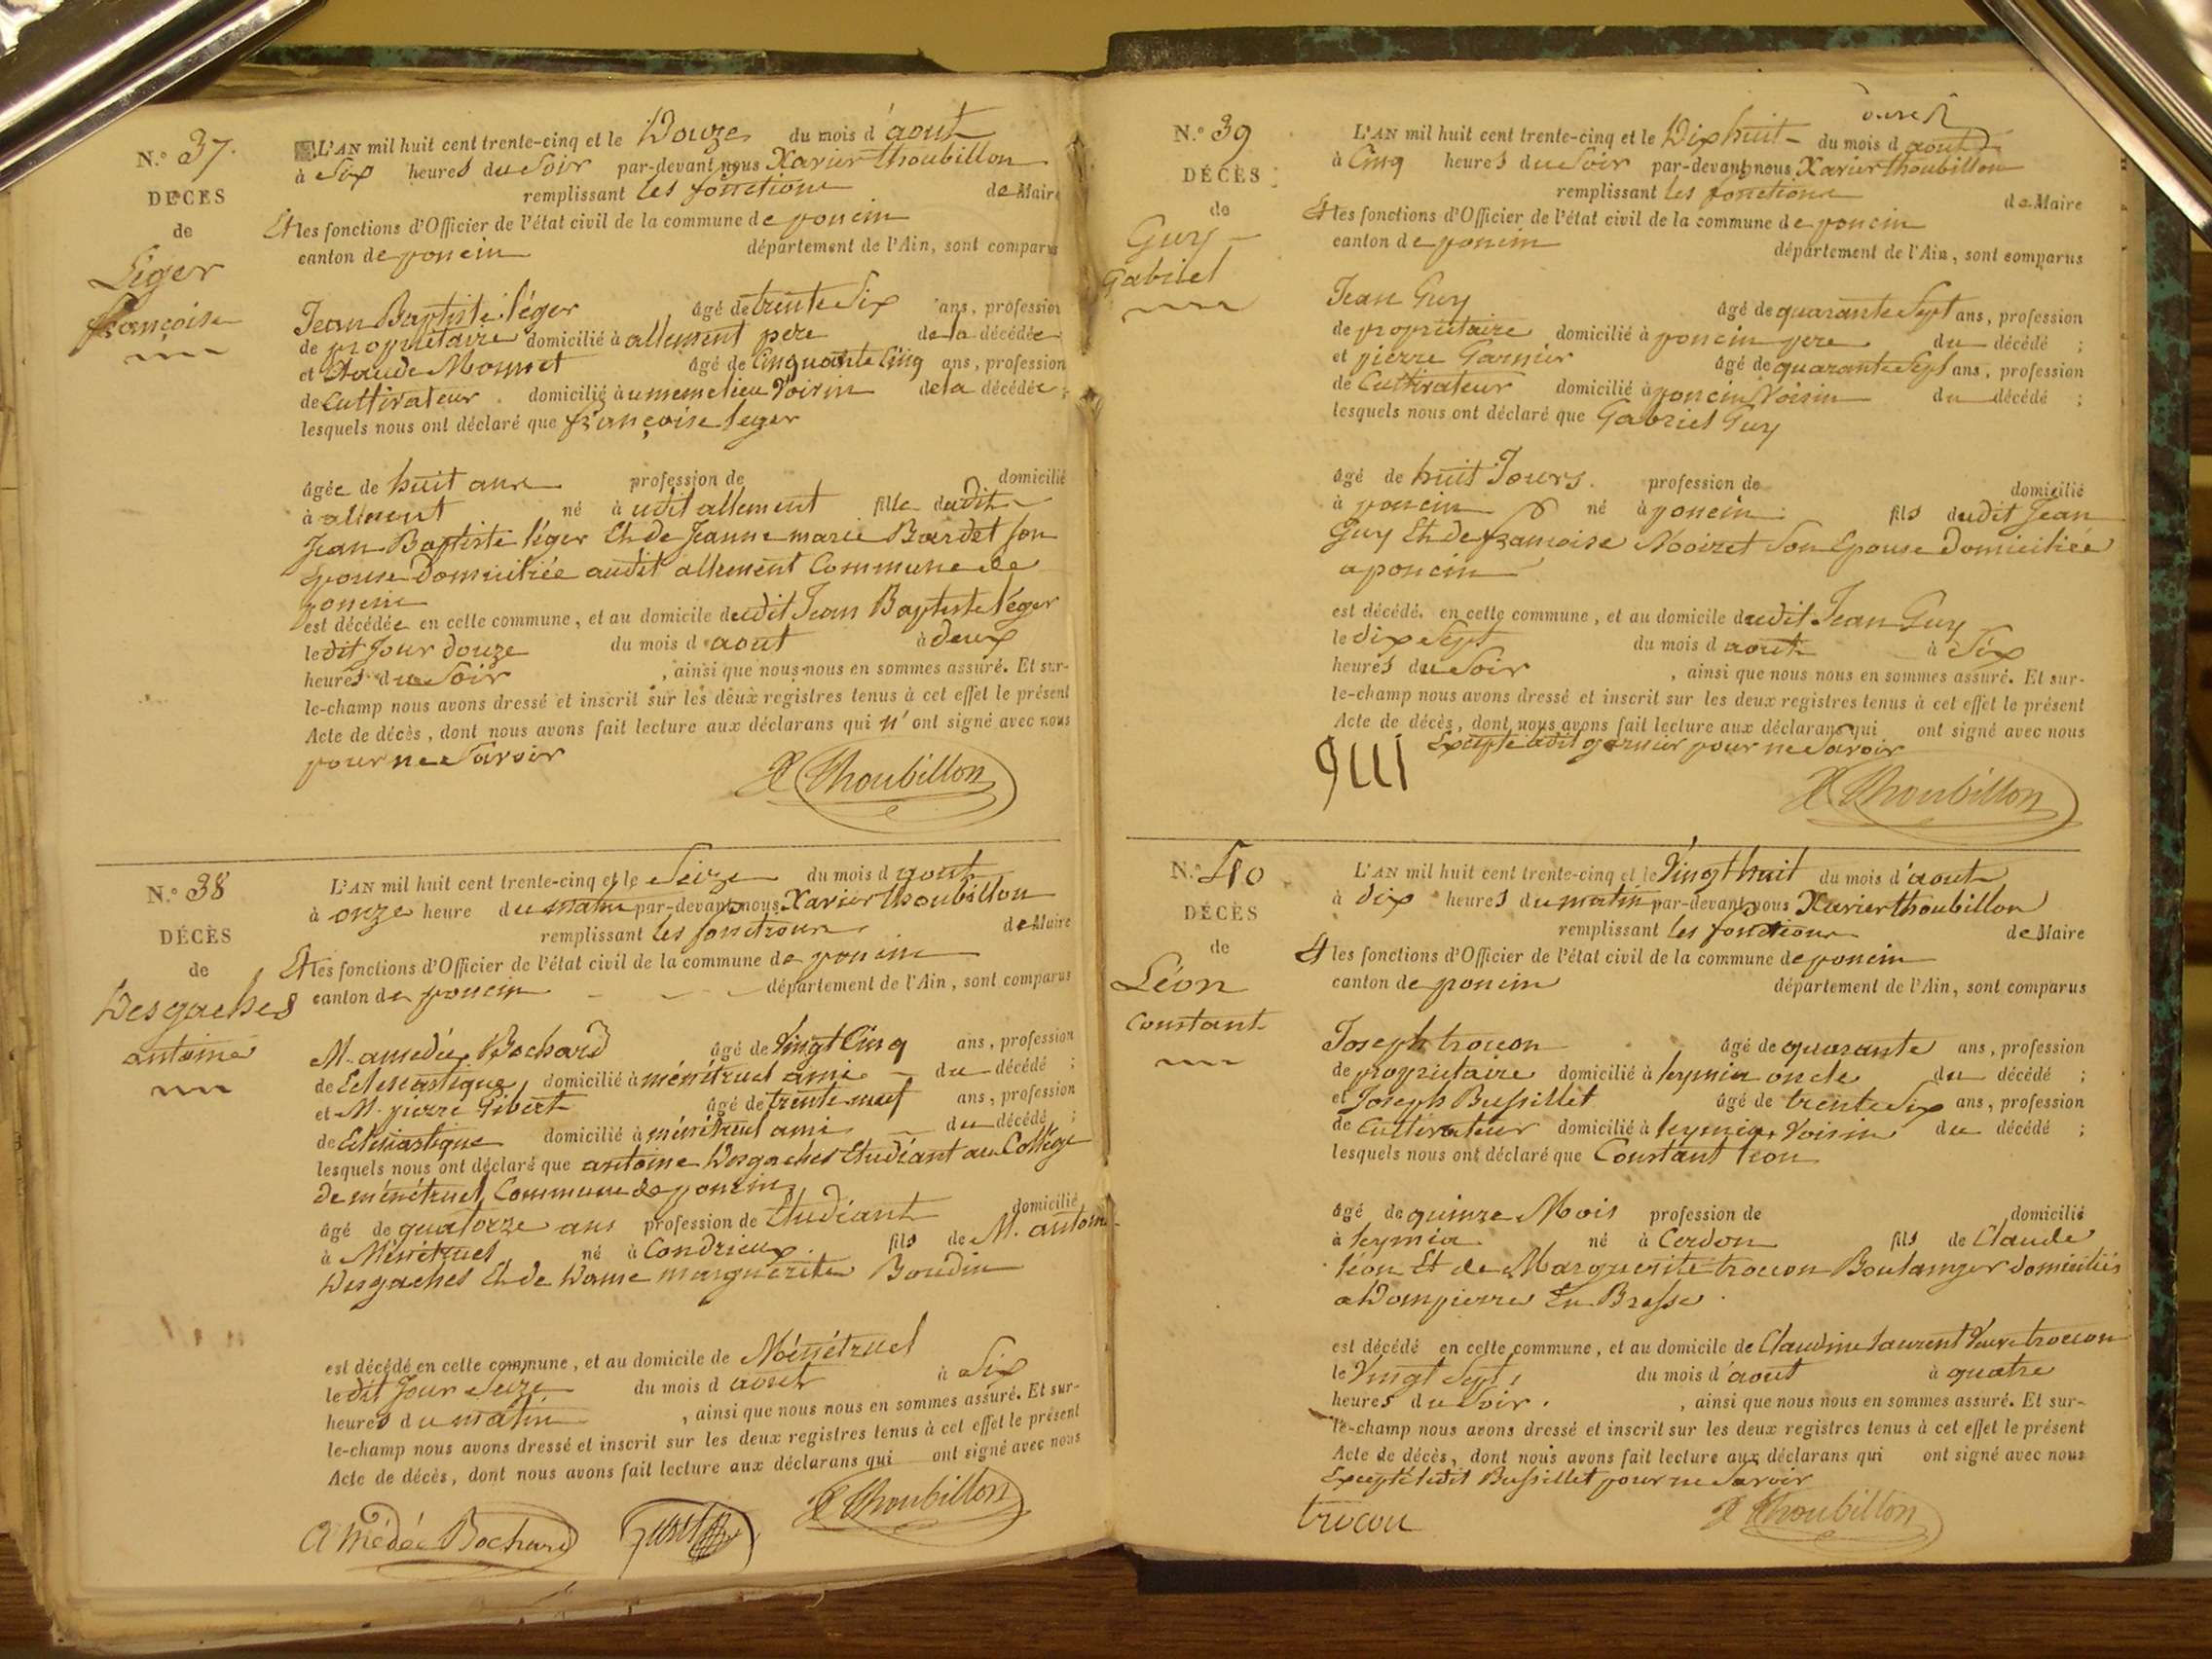 N.º 37.
DÉCÈS
de
Léger
françoise
L'AN mil huit cent trente-cinq et le Douze du mois d'aout
à Six heures du Soir par-devant nous Xavier thoubillon
remplissant les fonctions de Maire
Et les fonctions d'Officier de l'état civil de la commune de poncin
canton de poncin département de l'Ain, sont comparus
Jean Baptiste léger âgé de trente Six ans, profession
de propriétaire domicilié à allement pere de la décédée
et Claude Monnet âgé de Cinquante Cinq ans, profession
de Cultivateur domicilié à u meme lieu Voisin de la décédée ;
lesquels nous ont déclaré que françoise leger
âgée de huit ans profession de domicilié
à allement né à udit allement fille dudit
Jean Baptiste léger Et de Jeanne marie Bardet son
Epouse Domiciliée audit allement Commune de
poncin
est décédée en cette commune, et au domicile dudit Jean Baptiste léger
le dit Jour douze du mois d aout à deux
heures du Soir , ainsi que nous nous en sommes assuré. Et sur-
le-champ nous avons dressé et inscrit sur les deux registres tenus à cet effet le présent
Acte de décès, dont nous avons fait lecture aux déclarans qui n'ont signé avec nous
pour ne Savoir
X Thoubillon
N.º 38
DÉCÈS
de
Desgaches
antoine
L'AN mil huit cent trente-cinq et le Seize du mois d aout
à onze heure du matin par-devant nous Xavier thoubillon
remplissant les fonctions de Maire
Et les fonctions d'Officier de l'état civil de la commune de poncin
canton de poncin département de l'Ain, sont comparus
M. amédée Bochard âgé de Vingt Cinq ans, profession
de Eclesiastique, domicilié à ménétruel ami du décédé ;
et M. pierre Gibert âgé de trente neuf ans, profession
de Eclesiastique domicilié à ménétruel ami du décédé ;
lesquels nous ont déclaré que antoine Desgaches Etudiant au Collége
de ménétruel Commune de poncin
âgé de quatorze ans profession de Etudiant domicilié
à Ménétruel né à Condrieux. fils de M. antoine
Desgaches Et de Dame marguerite Boudin
est décédé en cette commune, et au domicile de Ménétruel
le dit Jour Seize du mois d aout à Six
heures du matin , ainsi que nous nous en sommes assuré. Et sur-
le-champ nous avons dressé et inscrit sur les deux registres tenus à cet effet le présent
Acte de décès, dont nous avons fait lecture aux déclarans qui ont signé avec nous
X Thoubillon
Amédée Bochard
N.º 39
DÉCÈS
de
Guy
Gabriel
L'AN mil huit cent trente-cinq et le Dix huit du mois d aout
à Cinq heures du Soir par-devant nous Xavier thoubillon
remplissant les fonctions de Maire
Et les fonctions d'Officier de l'état civil de la commune de poncin
canton de poncin département de l'Ain, sont comparus
Jean Guy âgé de quarante Sept ans, profession
de propriétaire domicilié à poncin pere du décédé ;
et pierre Garnier âgé de quarante Sept ans, profession
de Cultivateur domicilié à poncin Voisin du décédé ;
lesquels nous ont déclaré que Gabriel Guy
âgé de huit Jours. profession de domicilié
à poncin né à poncin fils dudit Jean
Guy Et de françoise Noizet Son Epouse Domiciliée
a poncin
est décédé en cette commune, et au domicile dudit Jean Guy
le dix Sept du mois d aout à Six
heures du Soir , ainsi que nous nous en sommes assuré. Et sur-
le-champ nous avons dressé et inscrit sur les deux registres tenus à cet effet le présent
Acte de décès, dont nous avons fait lecture aux déclarans qui ont signé avec nous
Excepté ledit garnier pour ne Savoir
X Thoubillon
N.º 40
DÉCÈS
de
Léon
Constant
L'AN mil huit cent trente-cinq et le Vingt huit du mois d'aout
à dix heures du matin par-devant nous Xavier thoubillon
remplissant les fonctions de Maire
Et les fonctions d'Officier de l'état civil de la commune de poncin
canton de poncin département de l'Ain, sont comparus
Joseph trocon âgé de quarante ans, profession
de propriétaire domicilié à leymia oncle du décédé ;
et Joseph Bussillet âgé de trente Six ans, profession
de Cultivateur domicilié à leymia Voisin du décédé ;
lesquels nous ont déclaré que Constant leon
âgé de quinze Mois profession de domicilié
à leymia né à Cerdon fils de Claude
léon Et de Marguerite trocon Boulanger domiciliés
a Dompierre En Bresse.
est décédé en cette commune, et au domicile de Claudine Laurent Veuve trocon
le Vingt Sept, du mois d'aout à quatre
heures du Soir. , ainsi que nous nous en sommes assuré. Et sur-
le-champ nous avons dressé et inscrit sur les deux registres tenus à cet effet le présent
Acte de décès, dont nous avons fait lecture aux déclarans qui ont signé avec nous
Excepté ledit Bussillet pour ne Savoir
X Thoubillon
trocon